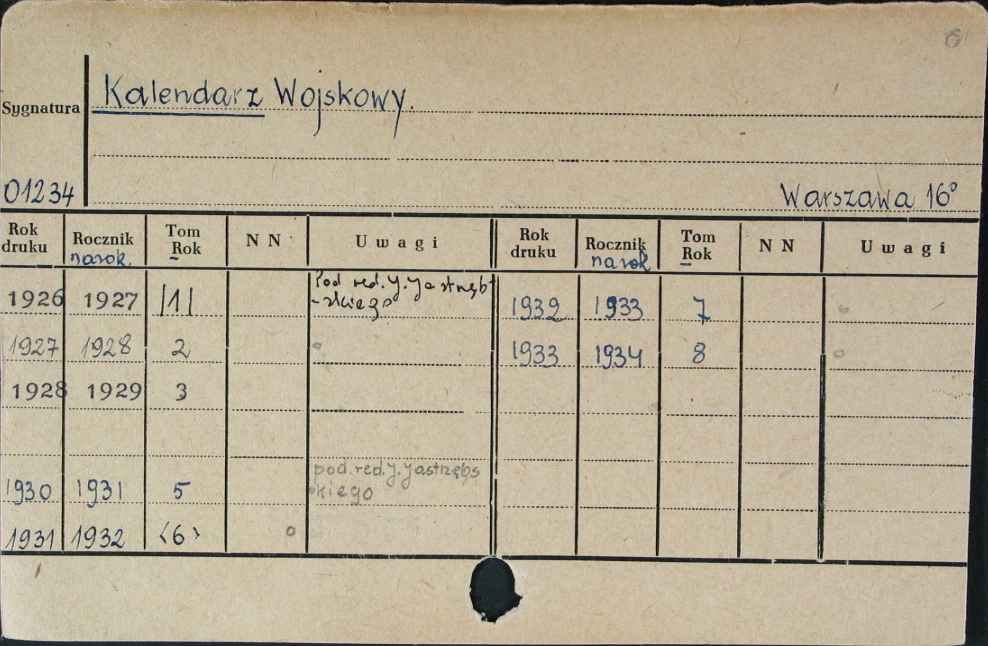 Sygnatura Kalendarz Wojskowy.
01234 Warszawa 16°
Rok druku Rocznik na rok. Tom Rok NN Uwagi Rok druku Rocznik na rok Tom Rok NN Uwagi
1926 1927 |1| Pod red. J. Jastrzęb-
-skiego 1932 1933 7
1927 1928 2 1933 1934 8
1928 1929 3
pod. red. J. Jastrzębs
1930 1931 5 kiego
1931 1932 <6>